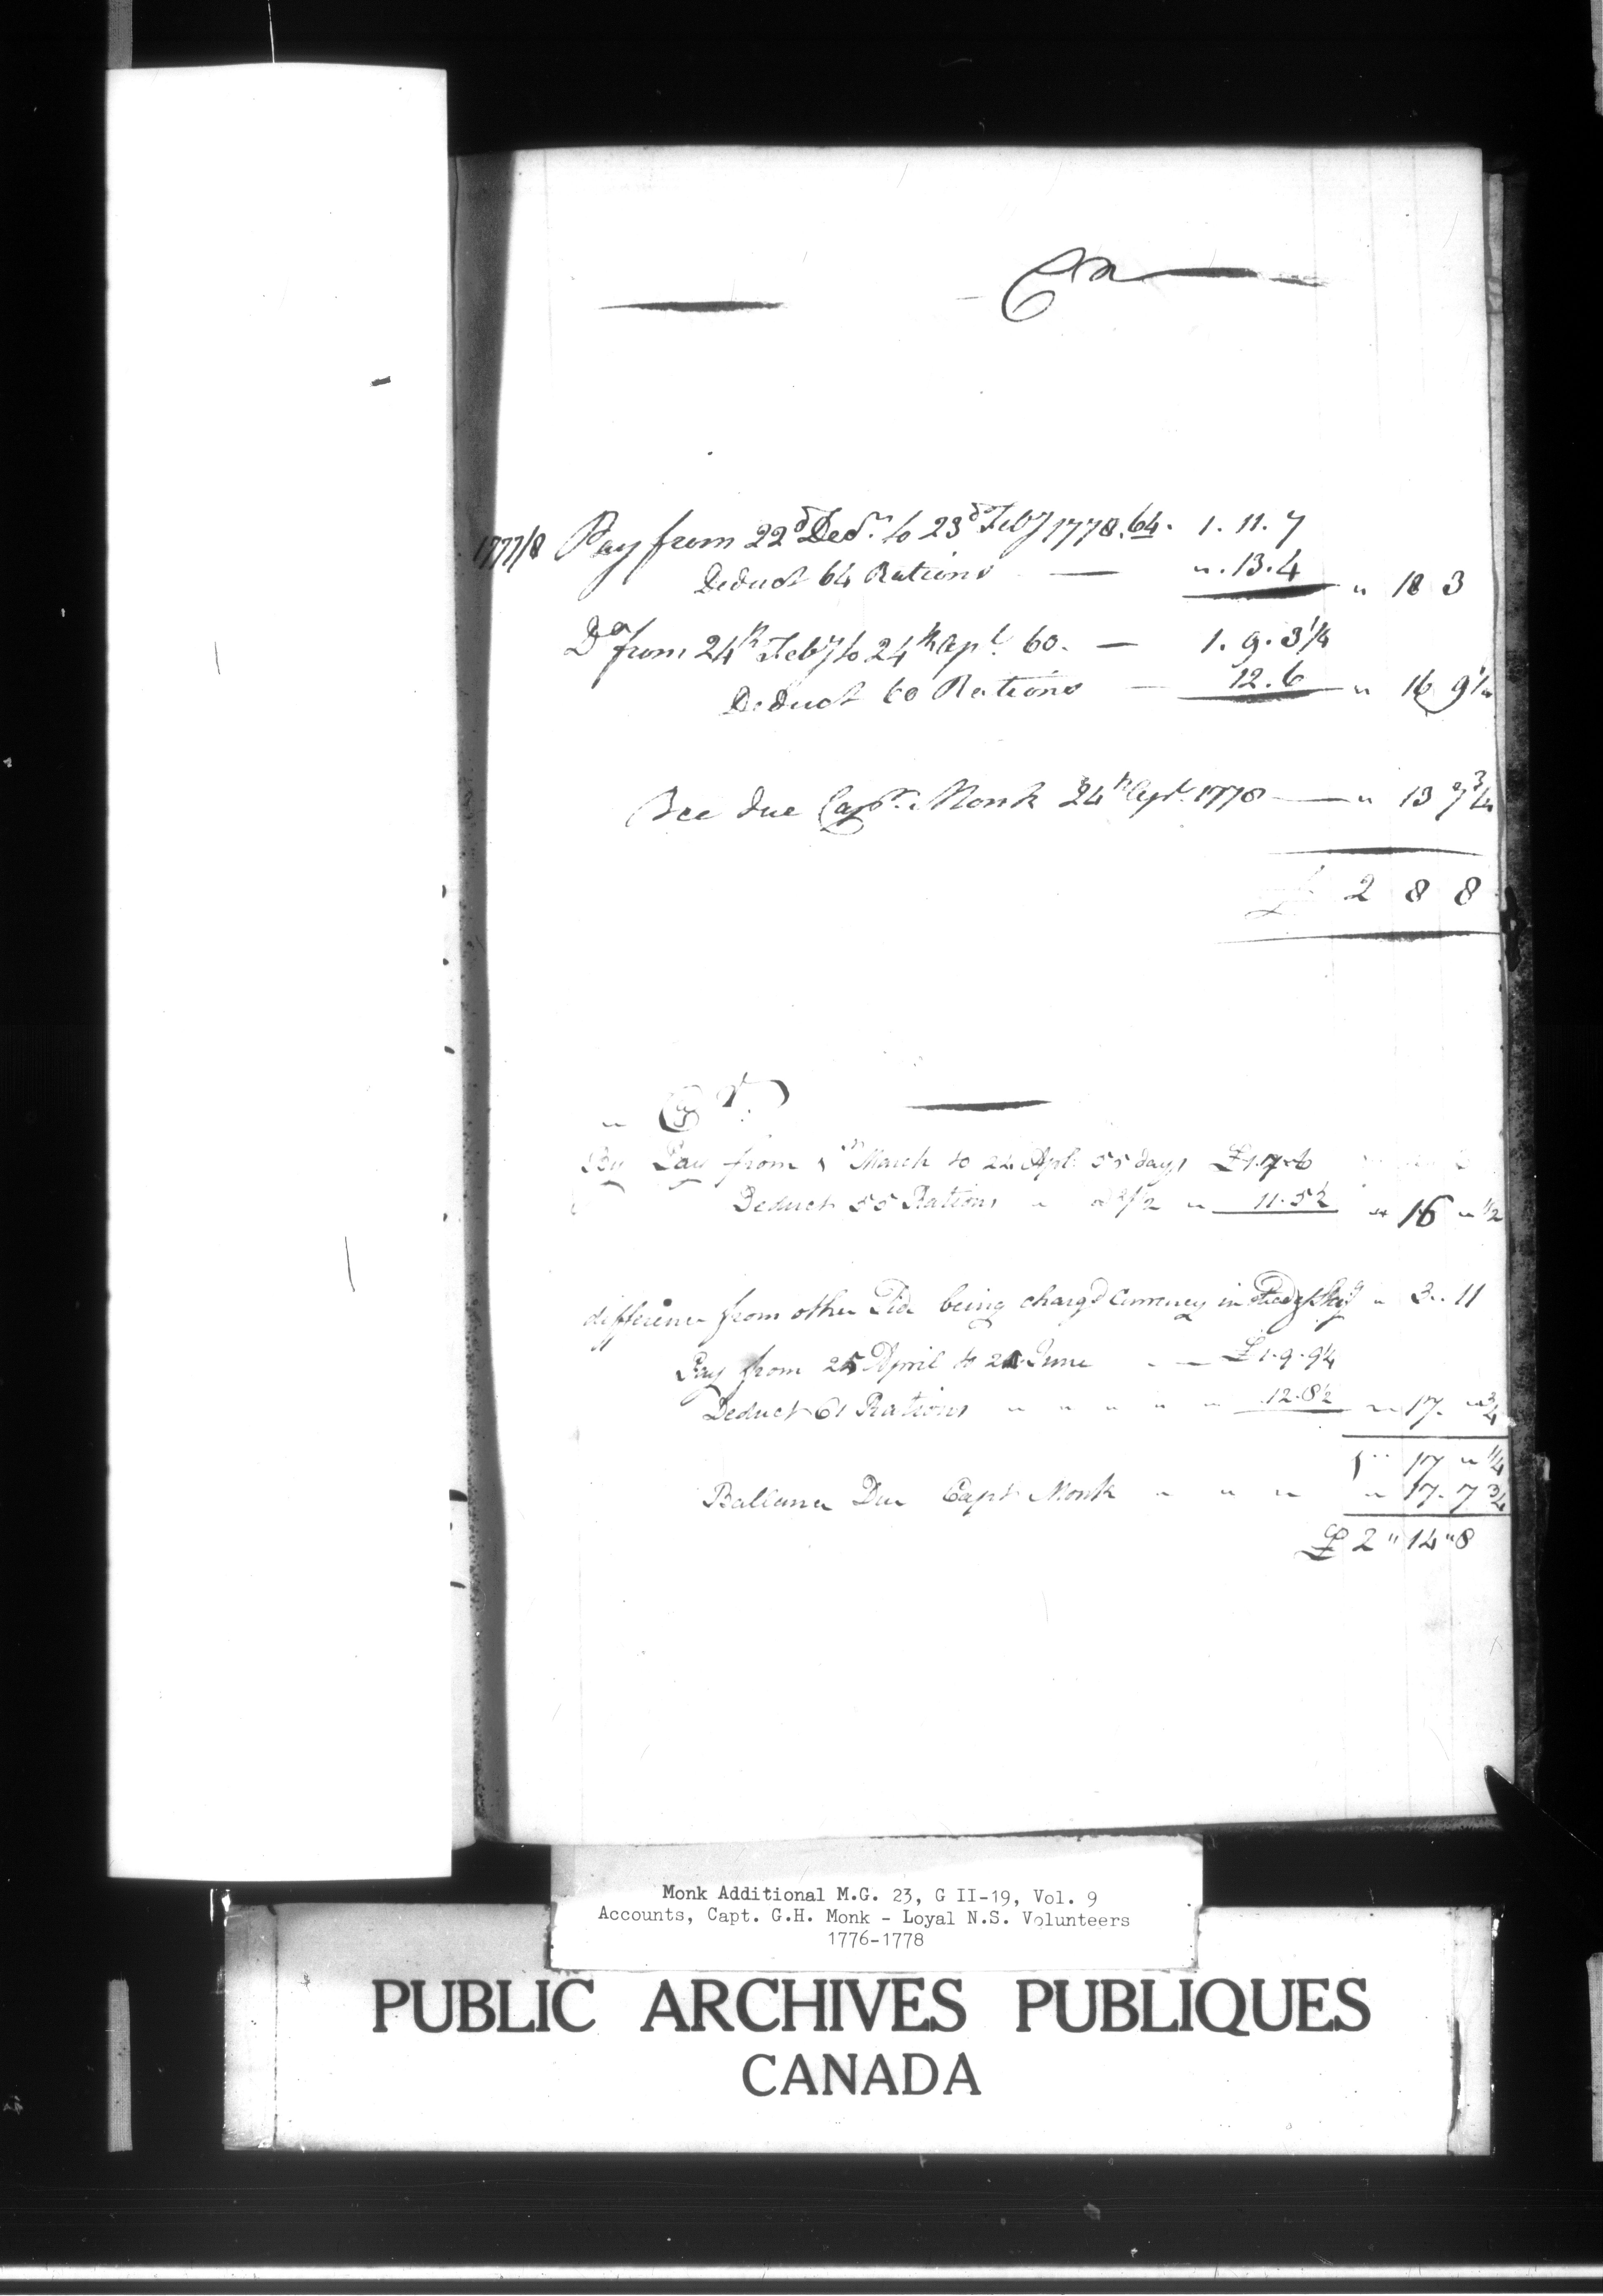 Cr
1777/8 Pay from 22d Decr. to 23d Feby 1778. 64. 1. 11. 7
Deduct 64 Rations — " . 13. 4 " 18 3
Do from 24th Feby to 24th Apl. 60. — 1. 9. 3 1/4
Deduct 60 Rations — 12. 6 " 16 9 1/4
Bce due Capt. Monk 24th Apl. 1778 — " 13 7 3/4
£ 2 8 8
" Cr.
By Pay from 1st March to 24 Apl. 55 days £1.7.6
Deduct 55 Rations " a 2 1/2 " 11. 5 1/2 " 16 " 1/2
difference from other Side being charg'd Currency in " 3 . 11
Pay from 25 April to 24 June - — £1. 9. 9 1/4
Deduct 61 Rations " " " " " 12. 8 1/2 " 17. " 3/4
1 " 17 " 1/4
Ballance Due Capt Monk " " " " 17. 7 3/4
£ 2 " 14 " 8
Monk Additional M.G. 23, G II-19, Vol. 9
Accounts, Capt. G.H. Monk - Loyal N.S. Volunteers
1776-1778
PUBLIC ARCHIVES PUBLIQUES
CANADA